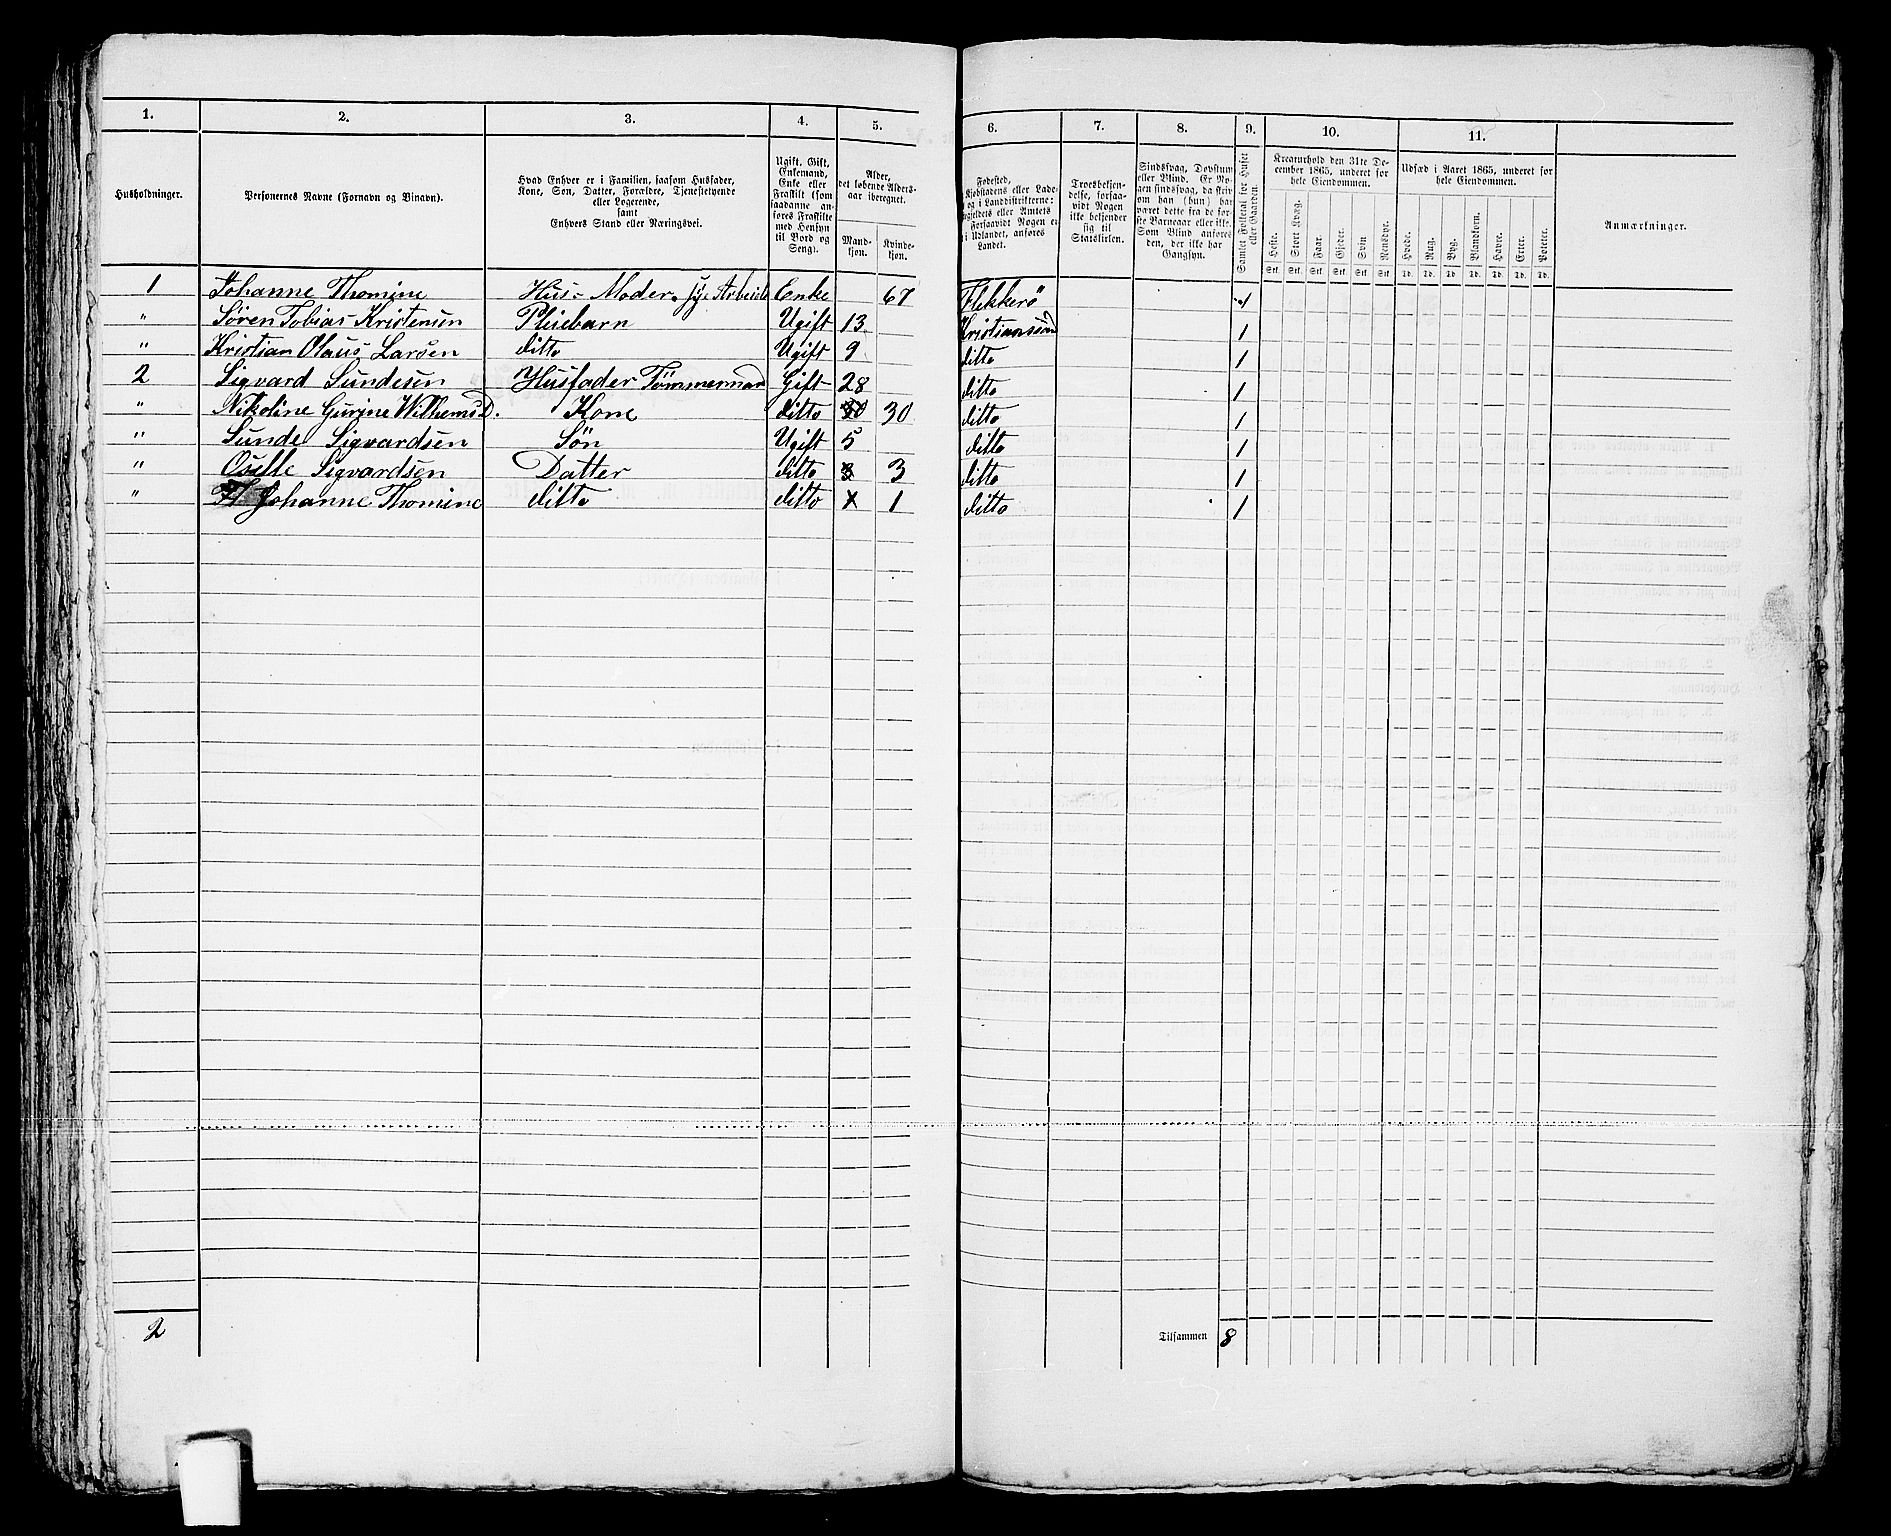 1. 2. 3. 4. 5. 6. 7. 8. 9. 10. 11.
Husholdninger.
Personernes Navne (Fornavn og Binavn).
Hvad Enhver er i Familien, saasom Husfader,
Kone, Søn, Datter, Forældre, Tjenestetyende
eller Logerende,
samt
Enhvers Stand eller Næringsvei.
Ugift, Gift,
Enkemand,
Enke eller
Fraskilt (som
saadanne an-
føres Fraskilte
med Hensyn
til Bord og
Seng).
Alder,
det løbende Alders-
aar iberegnet.
Mand-
kjøn.
Kvinde-
kjøn.
Fødested,
Kjøbstadens eller Lade-
og i Landdistrikterne:
egjeldets eller Amtets
Forsaavidt Nogen er
i Udlandet, anføres
Landet.
Troesbekjen-
delse, forsaa-
vidt Nogen
ikke bekjender
sig til
Statskirken.
Sindssvag, Døvstum
eller Blind. Er No-
gen sindssvag, da skriv
om han (hun) har
været dette fra de før-
ste Barneaar eller ikke.
Som Blind anføres
den, der ikke har
Gangsyn.
Samlet Folketal for Huset
eller Gaarden.
Kreaturhold den 31te De-
cember 1865, underet for
hele Eiendommen.
Heste. Stort Kvæg. Faar. Gjeder. Svin Rensdyr.
Stk. Stk. Stk. Stk. Stk. Stk.
Udsæd i Aaret 1865, underet for
hele Eiendommen.
Hvede. Rug. Byg. Blandkorn. Havre. Erter. Poteter.
Td. Td. Td. Td. Td. Td. Td.
Anmærkninger.
1 Johanne Thomine Hus-Moder. sye Arbeide Enke 67 Flekkerö 1
" Søren Tobias Kristensen Pleiebarn Ugift 13 Kristianssand 1
" Kristian Olaus Larsen ditto Ugift 9 ditto 1
2 Sigvard Sundesen Husfader Tömmermand Gift 28 ditto 1
" Nikoline Gurine Wilhemsd. Kone ditto 30 30 ditto 1
" Sunde Sigvardsen Sön Ugift 5 ditto 1
" Oselle Sigvardsen Datter ditto 3 3 ditto 1
" Johanne Thomine ditto ditto 1 1 ditto 1
2 Tilsammen 8